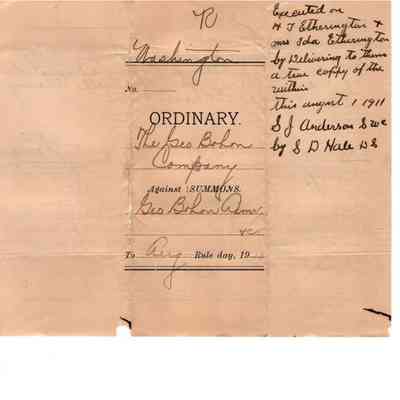 R
Washington
No.
ORDINARY.
The Geo Bohon
Company
Against SUMMONS.
Geo Bohon Admr
&c
To Aug Rule day, 19
Executed on
H T Etherington &
mrs Ida Etherington
by Delivering to them
a true coppy of the
within
this august 1 1911
S J Anderson S W C
by S D Hale D S